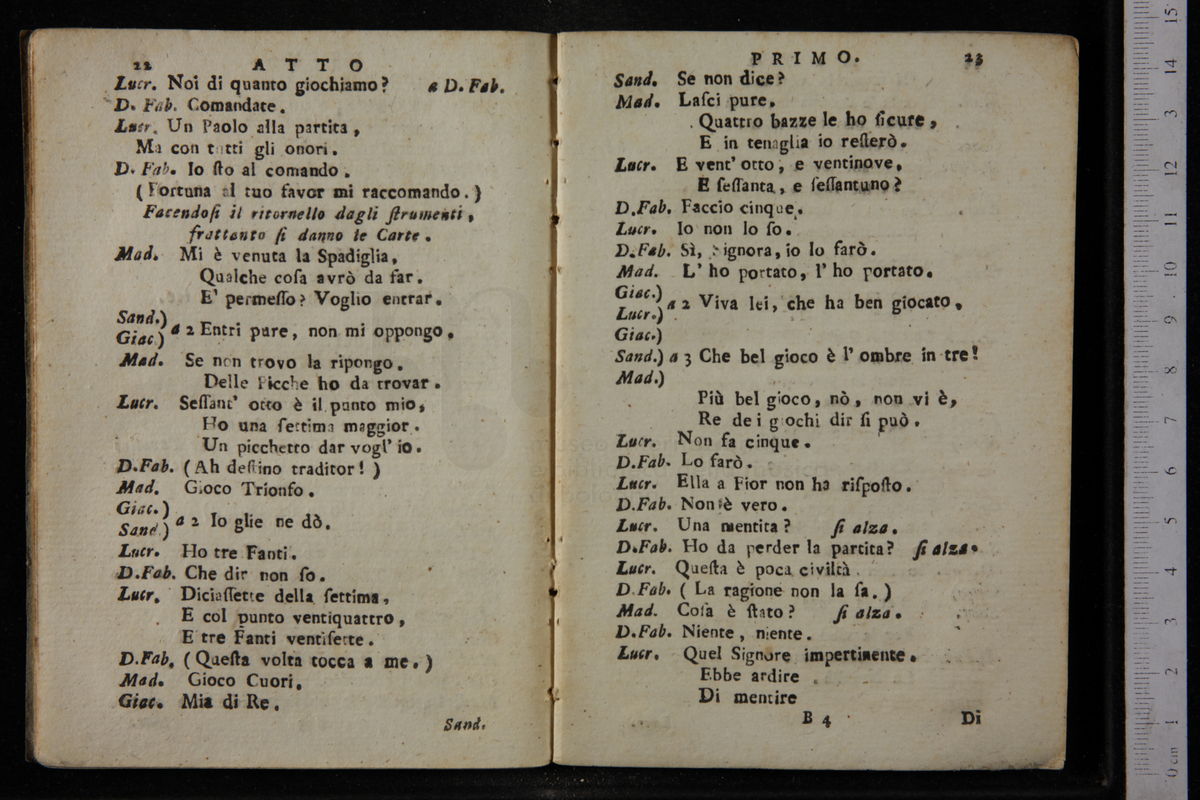 22 ATTO
Lucr. Noi di quanto giochiamo? a D. Fab.
D. Fab. Comandate.
Lucr. Un Paolo alla partita,
Ma con tutti gli onori.
D. Fab. Io ſto al comando.
(Fortuna al tuo favor mi raccomando.)
Facendoſi il ritornello dagli ſtrumenti,
frattanto ſi danno le Carte.
Mad. Mi è venuta la Spadiglia,
Qualche coſa avrò da far.
E' permeſſo? Voglio entrar.
Sand.)
Giac.) a 2 Entri pure, non mi oppongo.
Mad. Se non trovo la ripongo.
Delle Picche ho da trovar.
Lucr. Seſſant' otto è il punto mio,
Ho una ſettima maggior.
Un picchetto dar vogl' io.
D.Fab. (Ah deſtino traditor!)
Mad. Gioco Trionfo.
Giac.)
Sand.) a 2 Io glie ne dò.
Lucr. Ho tre Fanti.
D.Fab. Che dir non ſo.
Lucr. Diciaſſette della ſettima,
E col punto ventiquattro,
E tre Fanti ventiſette.
D.Fab. (Queſta volta tocca a me.)
Mad. Gioco Cuori.
Giac. Mia di Re.
Sand.
PRIMO. 23
Sand. Se non dice?
Mad. Laſci pure.
Quattro bazze le ho ſicure,
E in tenaglia io reſterò.
Lucr. E vent' otto, e ventinove,
E ſeſſanta, e ſeſſantuno?
D.Fab. Faccio cinque.
Lucr. Io non lo ſo.
D.Fab. Sì, Signora, io lo farò.
Mad. L' ho portato, l' ho portato.
Giac.)
Lucr.) a 2 Viva lei, che ha ben giocato.
Giac.)
Sand.) a 3 Che bel gioco è l' ombre in tre!
Mad.)
Più bel gioco, nò, non vi è,
Re dei giochi dir ſi può.
Lucr. Non fa cinque.
D.Fab. Lo farò.
Lucr. Ella a Fior non ha riſpoſto.
D.Fab. Non è vero.
Lucr. Una mentita? ſi alza.
D.Fab. Ho da perder la partita? ſi alza.
Lucr. Queſta è poca civiltà.
D.Fab. (La ragione non la ſa.)
Mad. Coſa è ſtato? ſi alza.
D.Fab. Niente, niente.
Lucr. Quel Signore impertinente.
Ebbe ardire
Di mentire
B 4 Di